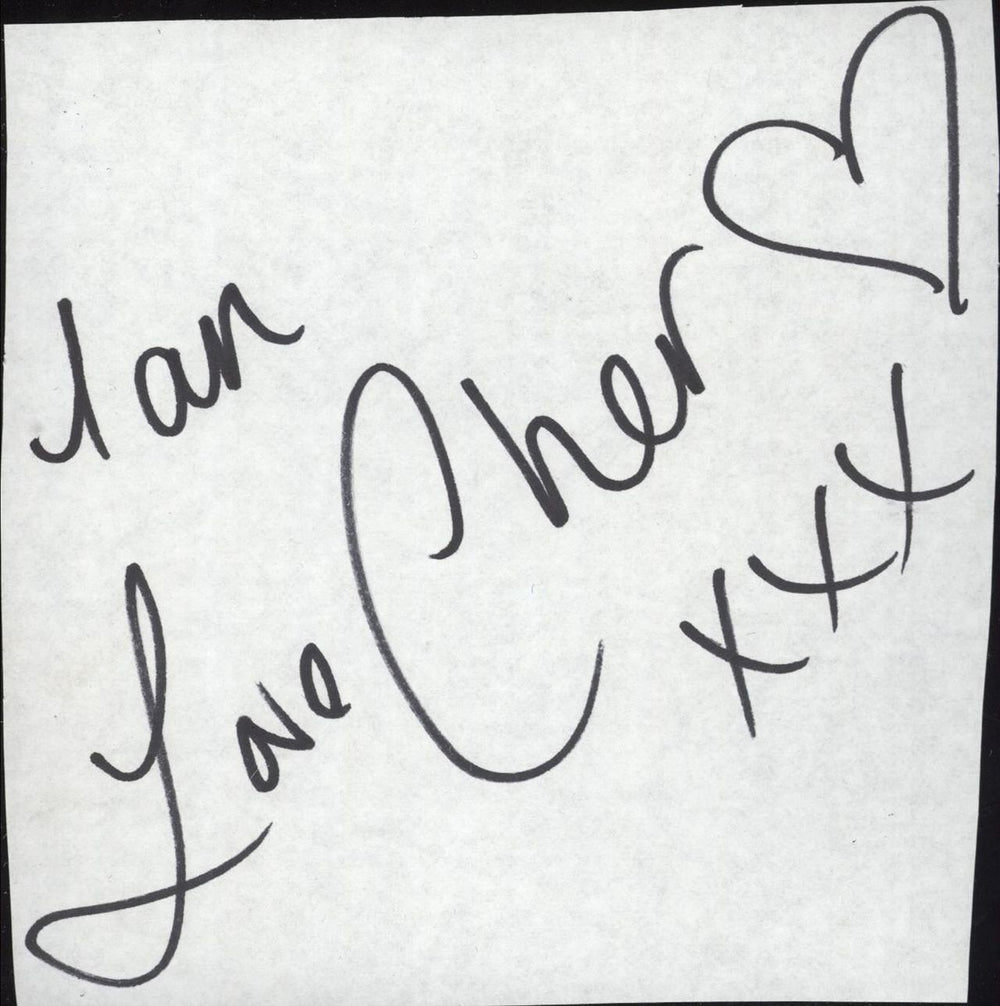 Ian
Love Cher ♡
xxx